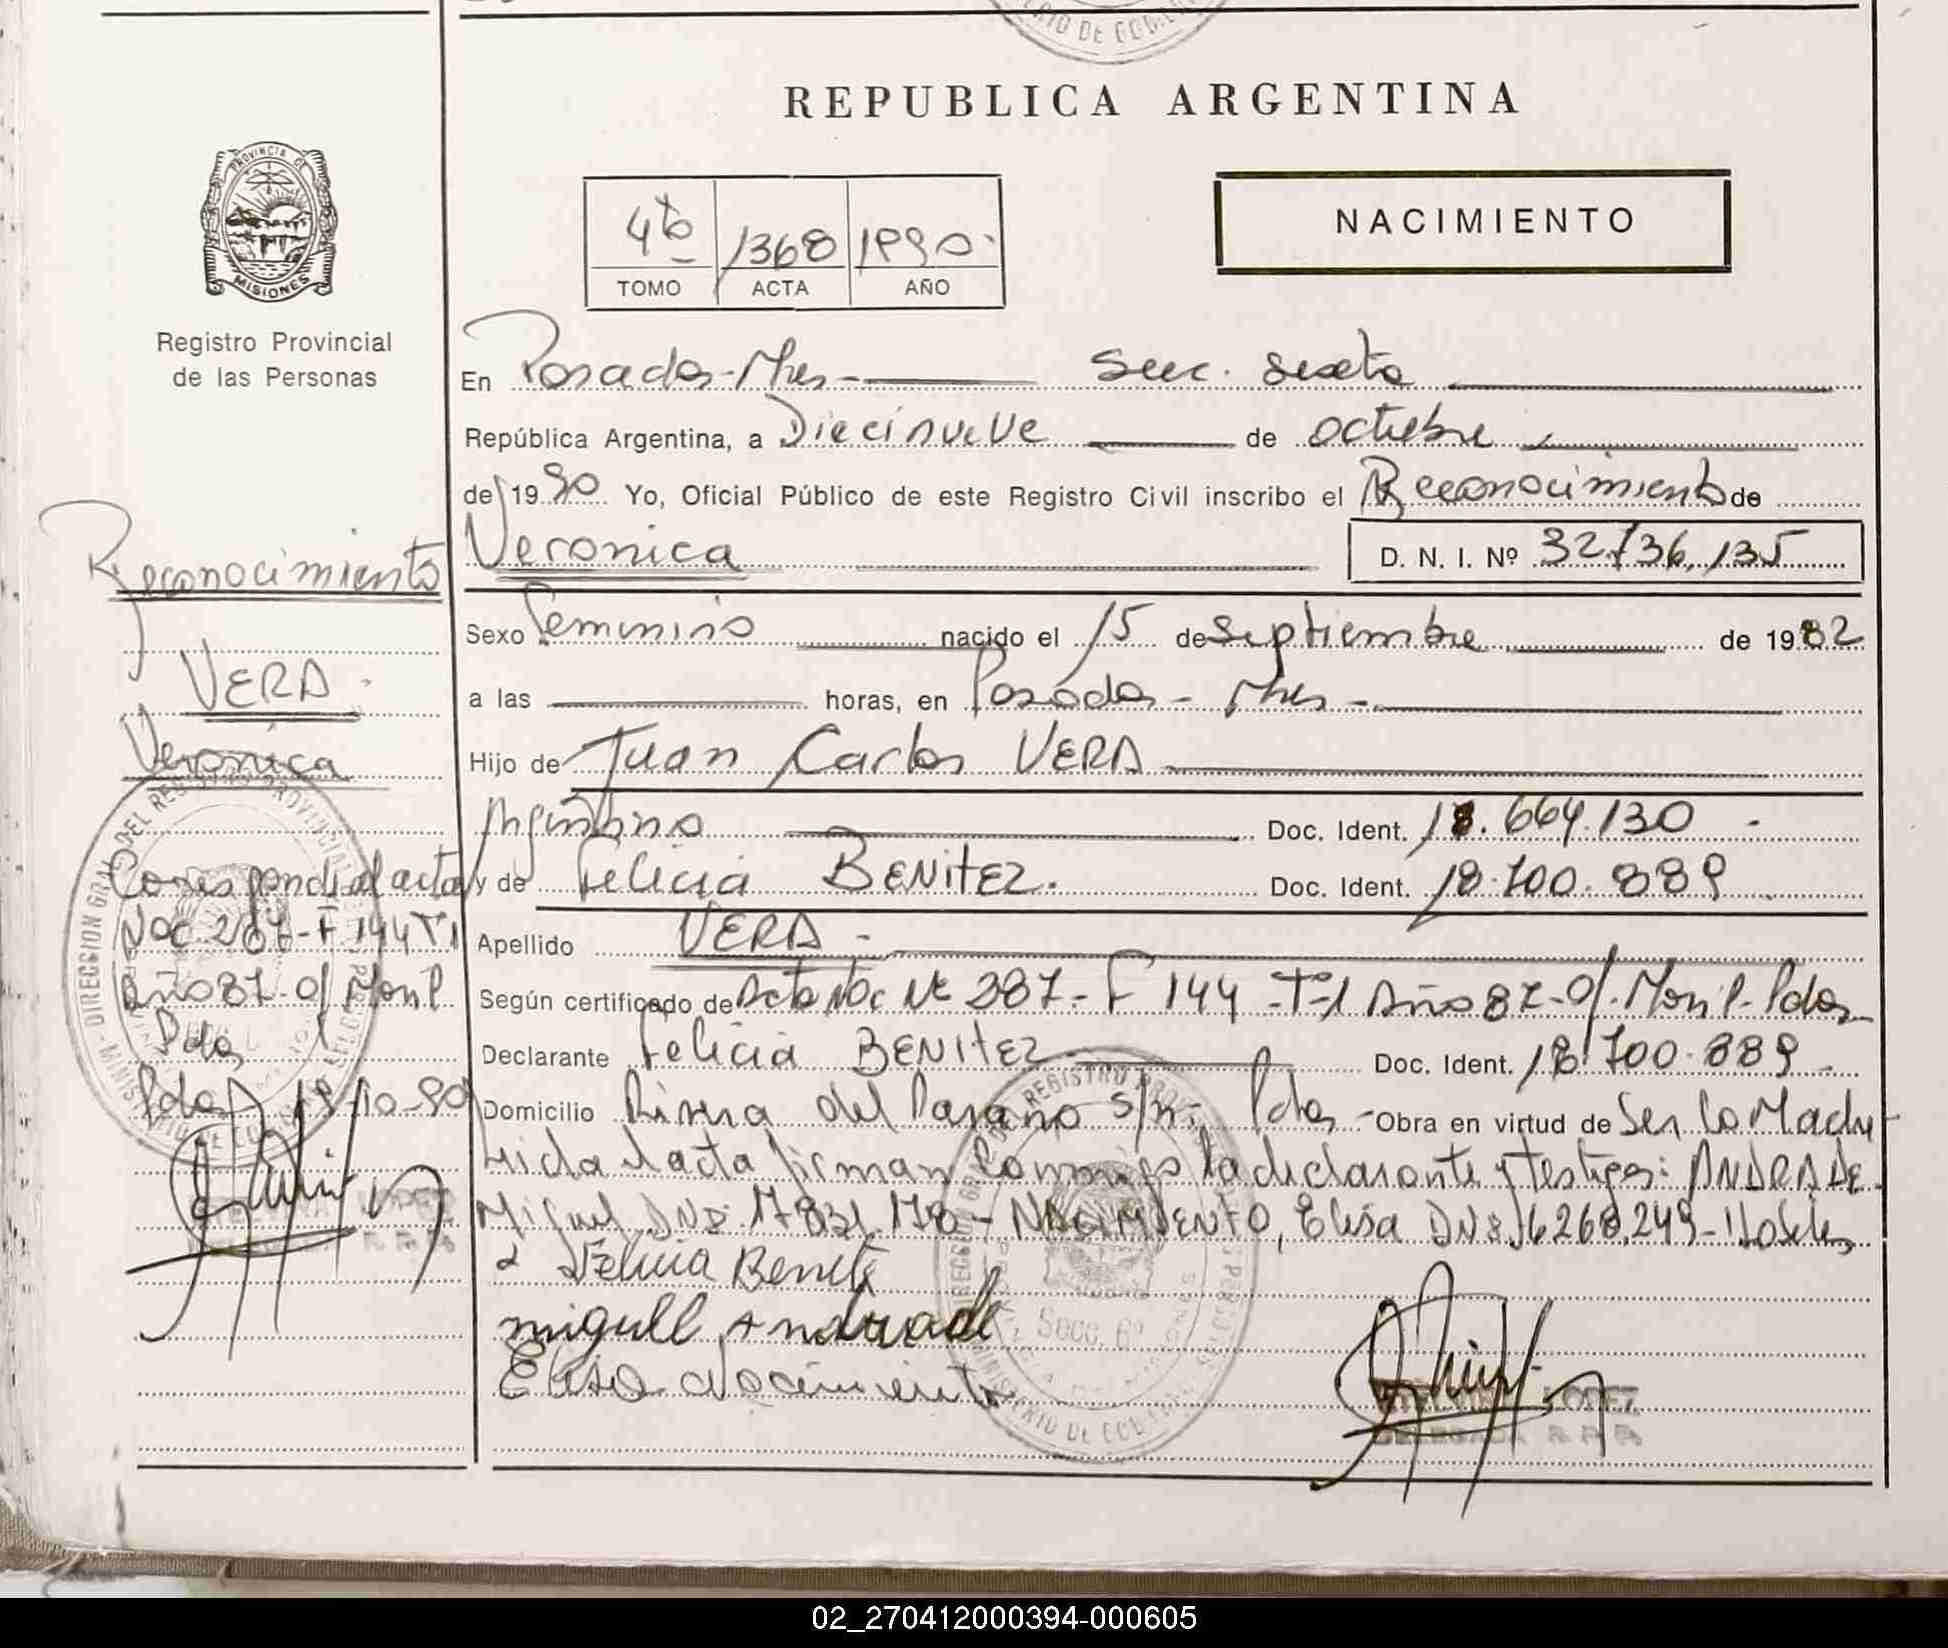 REPUBLICA ARGENTINA
PROVINCIA DE
MISIONES
Registro Provincial
de las Personas
4to 1368 1990
TOMO ACTA AÑO
NACIMIENTO
En Posadas-Mnes- Secc. Sexta
República Argentina, a Diecinueve de octubre
de 1990 Yo, Oficial Público de este Registro Civil inscribo el Reconocimiento de
Veronica D. N. I. Nº 32.736.135
Sexo Femenino nacido el 15 de Septiembre de 1982
a las horas, en Posadas - Mnes -
Hijo de Juan Carlos VERA
Argentino Doc. Ident. 18.664.130 -
y de Felicia BENITEZ. Doc. Ident. 18.700.889
Apellido VERA -
Según certificado de Acta Nac Nº 287 - F 144 - Tº 1 Año 87 - Of. Monl - Pdas
Declarante Felicia BENITEZ Doc. Ident. 18.700.889
Domicilio Rivera del Parana s/n - Pdas - Obra en virtud de Ser la Madre
Leida el acta firman conmigo la declarante y testigos: ANDRADE
Miguel DNI. 17.831.178 - NACIMIENTO, Elisa DNI 16268.249 -
Felicia Benite
miguel Andrade
Elisa Nacimiento
Reconocimiento
VERA -
Veronica
Corresponde al acta
Nac. 287 - F 144 T1
Año 87 - Of Monl
Pdas
Pdas 19-10-90
LOPEZ
DELEGADA R. P. P.
Secc. 6ª
02_270412000394-000605